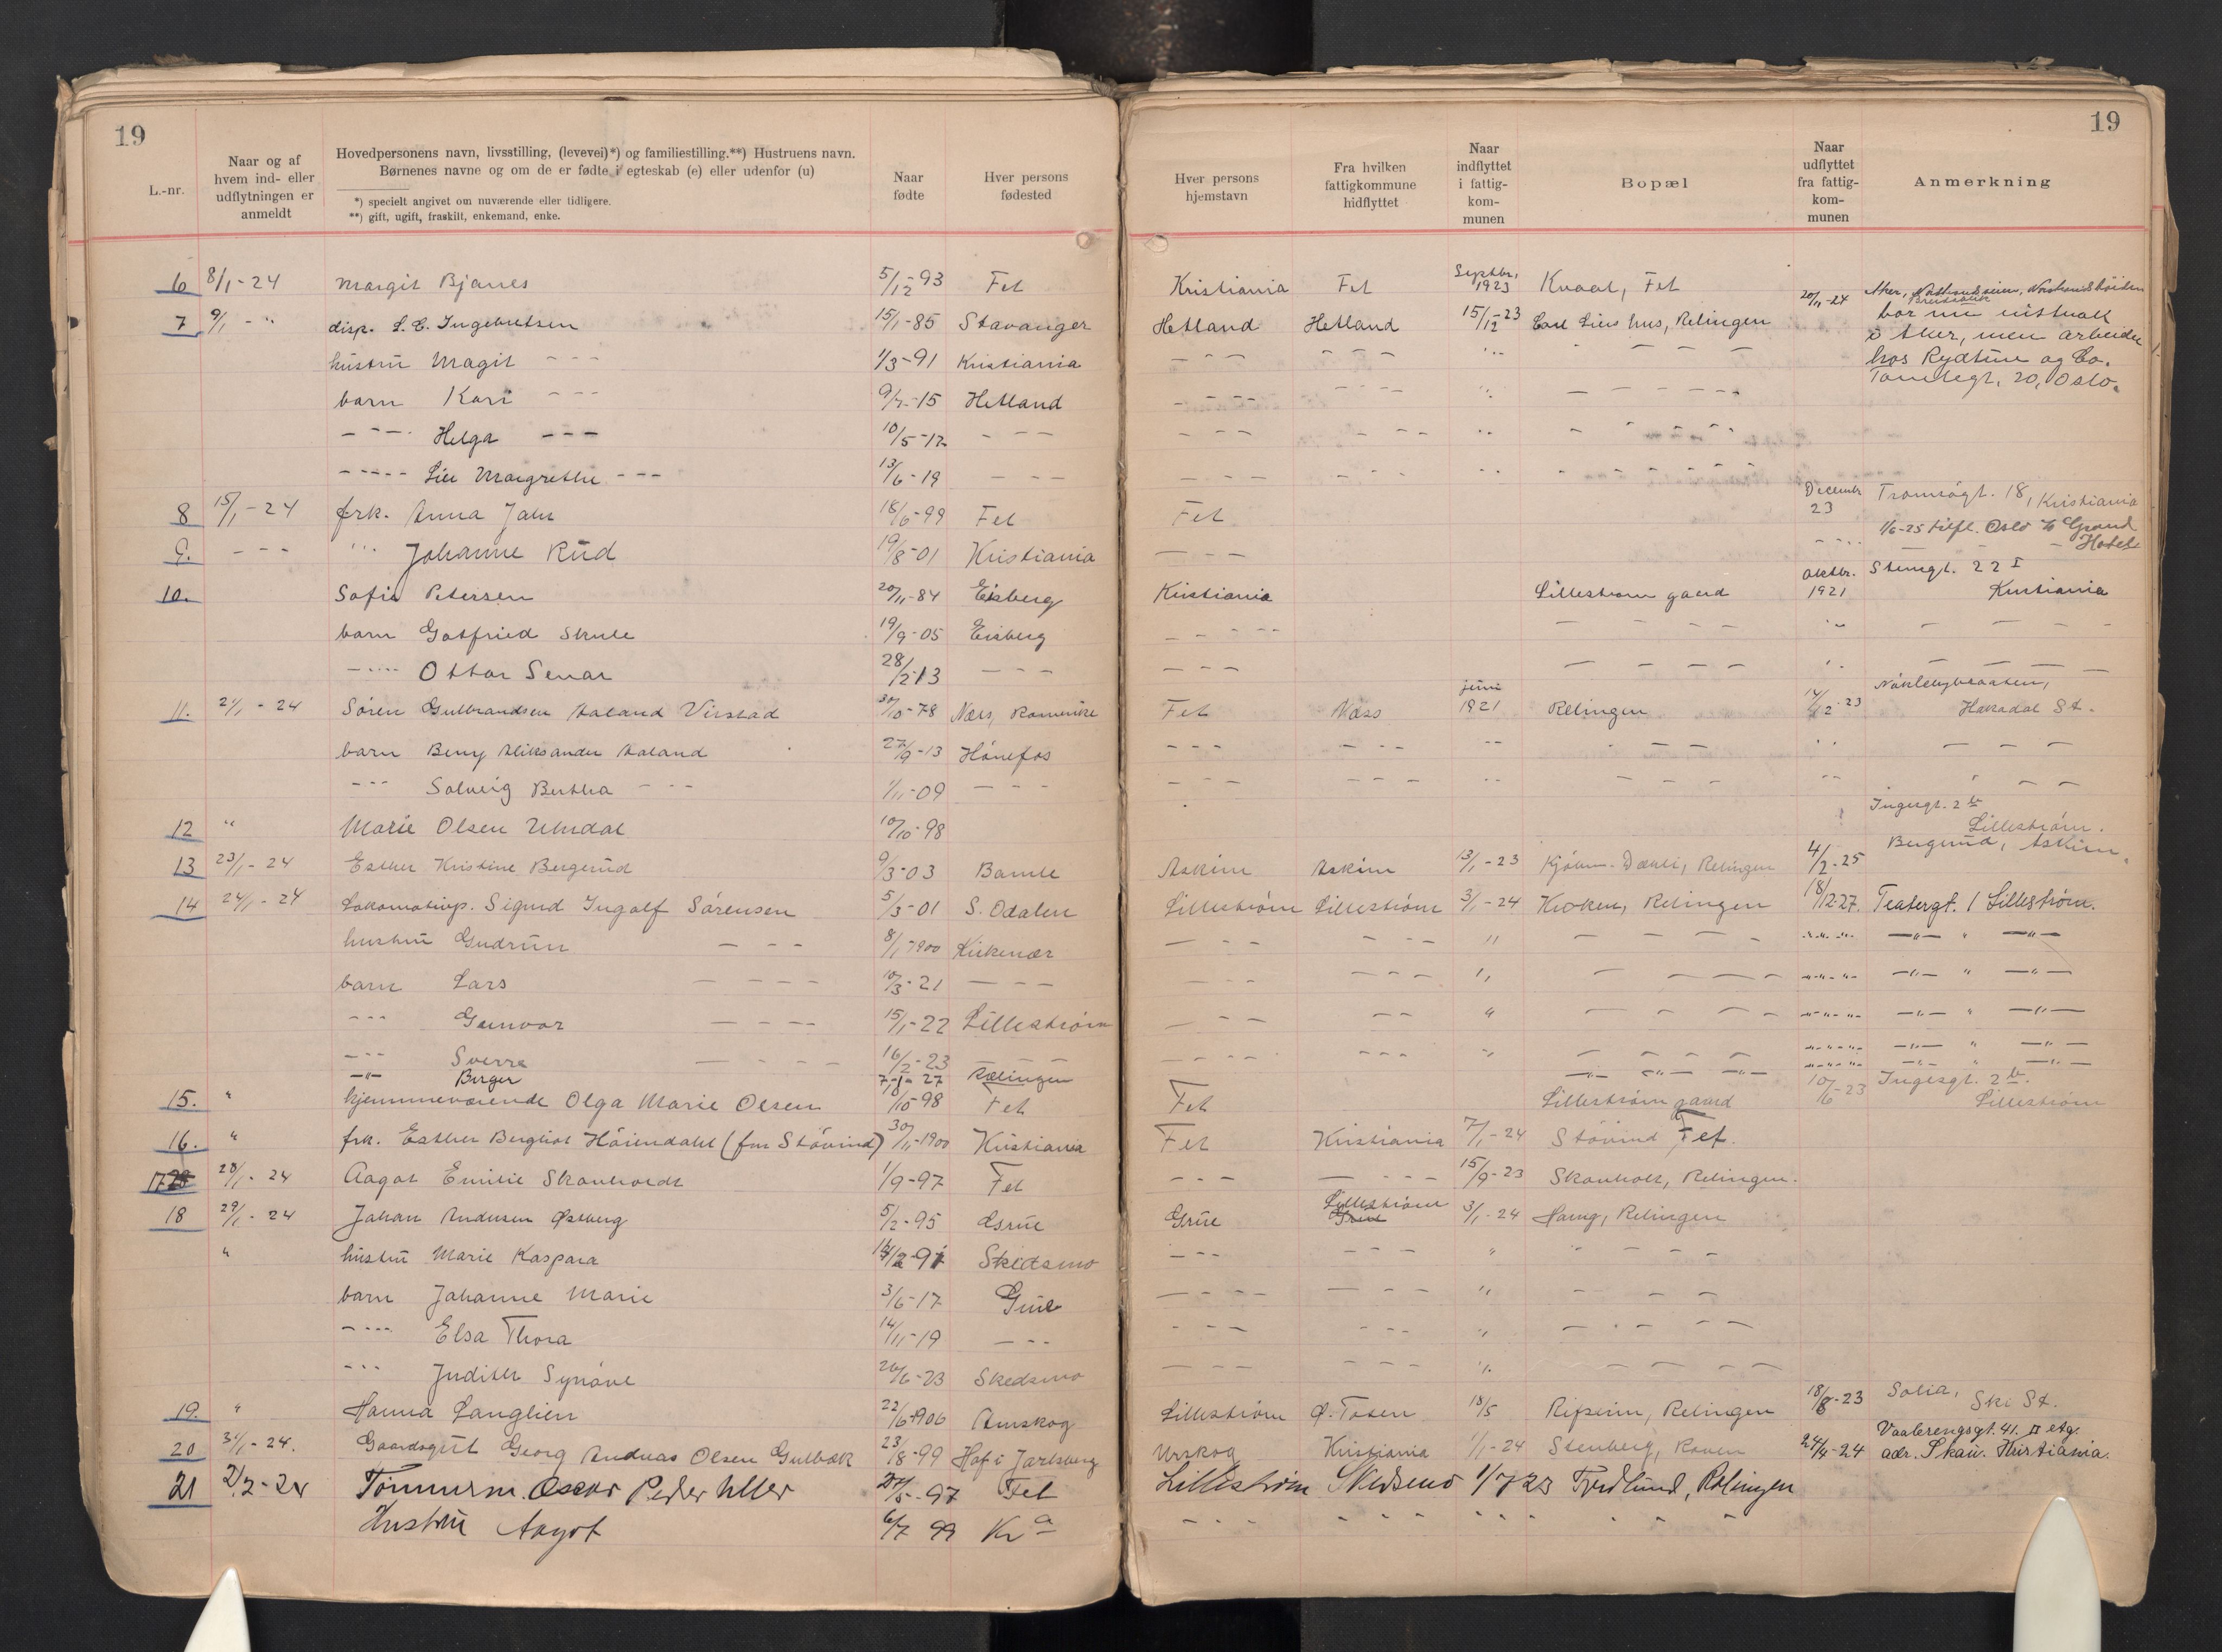 19
19
L.-nr.
Naar og af hvem ind- eller udflytningen er anmeldt
Hovedpersonens navn, livsstilling, (levevei)*) og familiestilling.**) Hustruens navn.
Børnenes navne og om de er fødte i egteskab (e) eller udenfor (u)
*) specielt angivet om nuværende eller tidligere.
**) gift, ugift, fraskilt, enkemand, enke.
Naar fødte
Hver persons fødested
Hver persons hjemstavn
Fra hvilken fattigkommune hidflyttet
Naar indflyttet i fattigkommunen
Bopæl
Naar udflyttet fra fattigkommunen
Anmerkning
6 8/1-24 Margit Bjanes 5/12-93 Fet Kristiania Fet Septbr. 1923 Kvaal, Fet
7 9/1 - " disp. S. E. Ingebretsen 15/1-85 Stavanger Hetland Hetland 15/12-23 Carl Liens hus, Relingen 20/11-24 Aker,
bor nu
i Aker, men arbeider
hustru Magit - - - 1/3-91 Kristiania - - - - - - " - - -
hos Rydtun og Co.
Tomtegt. 20, Oslo.
barn Kari - - - 9/7-15 Hetland - - - - - - - - " - - - - -
- - - Helga - - - 10/5-17 - - - - - - - - - " - - - - -
- - - - Liv Margrethe - - - 13/6-19 - - - - - - - - - - " - - - - - -
8 15/1-24 frk. Anna Jahr 18/6-99 Fet Fet Decembr 23 Tromsøgt. 18, Kristiania
9. - - - " Johanne Rud 19/8-01 Kristiania - - - - - - 1/6-25 tilfl. Oslo % Grand Hotel
10. Sofie Petersen 20/11-84 Eisberg Kristiania Lillestrøm gaard Oktbr. 1921 Stengt. 22 I
Kristiania
barn Gotfried Skule 19/9-05 Eisberg - - - - - - - - " - - - -
- - - Ottar Senar 28/2-13 - - - - - - - - - - " - - - -
11. 21/1-24 Søren Gulbrandsen Aaland Virstad 30/10-78 Næs, Romerike Fet Næss juni 1921 Relingen 14/12-23
Hakadal St.
barn Beny Aleksander Aaland 27/9-13 Hønefos - - - - - - " - - - " - - -
- - - Solveig Bertha - - - 1/11-09 - - - - - - - - - " - - - " - - -
12 " Marie Olsen 10/10-98 Ingesgt. 2 b
Lillestrøm.
13 23/1-24 Esther Kristine Bergerud 9/3-03 Bamle Askim Askim 13/1-23 Kjøbm. Dæhli, Relingen 4/2-25 Bergerud, Askim.
14 24/1-24 Lokomotivp. Sigurd Ingolf Sørensen 5/3-01 S. Odalen Lillestrøm Lillestrøm 3/1-24 Kroken, Relingen 18/12-27. Teatergt. 1 Lillestrøm.
hustru Gudrun - - - 8/1-1900 Kirkenær - - - - - - " - - - - -"- -"- " -"-
barn Lars - - - - 10/3-21 - - - - - - - - - " - - - - -"- -"- " -"-
- - - Gunvor - - - - 15/1-22 Lillestrøm - - - - - " - - - - -"- -"- " -"-
- - - Sverre - - - - 16/2-23 - - - - - - - - - - " - - - - -"- -"- " -"-
-"- Birger 7/1-27 Rælingen -"- -"- -"- -"- -"- " -"-
15. " hjemmeværende Olga Marie Olsen 18/10-98 Fet Fet Lillestrøm gaard 10/6-23 Ingesgt. 2 b.
Lillestrøm
16. " frk. Esther Bergliot Høiendahl (frn Støvind) 30/11-1900 Kristiania Fet Kristiania 7/1-24 Støvind Fet.
17 28/1-24 Aagot Emilie Skanholdt 1/9-97 Fet - - - - - - - 15/9-23 Skanholt, Relingen.
18 29/1-24 Johan Andersen Østberg 5/2-95 Grue Grue Lillestrøm 3/1-24 Haug, Relingen
" hustru Marie Kaspara 14/2-91 Skedsmo - - - - - - " - - - -
barn Johanne Marie 3/6-17 Grue - - - - - - - - " - - - -
- - - Elsa Thora 14/11-19 - - - - - - - - - " - - - -
- - - Judith Synøve 26/6-23 Skedsmo - - - - - - - " - - - -
19. " Hanna Langlien 22/6-1906 Aurskog Lillestrøm Ø. Toten 18/5 Ripsim, Relingen 18/8-23 Solia, Ski St.
20 31/1-24. Gaardsgut Georg Andreas Olsen Gulbæk 23/8-99 Hof i Jarlsberg Urskog Kristiania 1/1-24 Stenberg, Roven 24/4-24 Vaalerengsgt. 41. II etg.
adr. Skau. Kristiania.
21 2/2-24 Tømmerm. Oscar Peder Uller 27/5-97 Fet Lillestrøm Skedsmo 1/7 23 Fredlund, Relingen
Hustru Aagot 6/7 99 Kra - - - - - - - " " " - - -